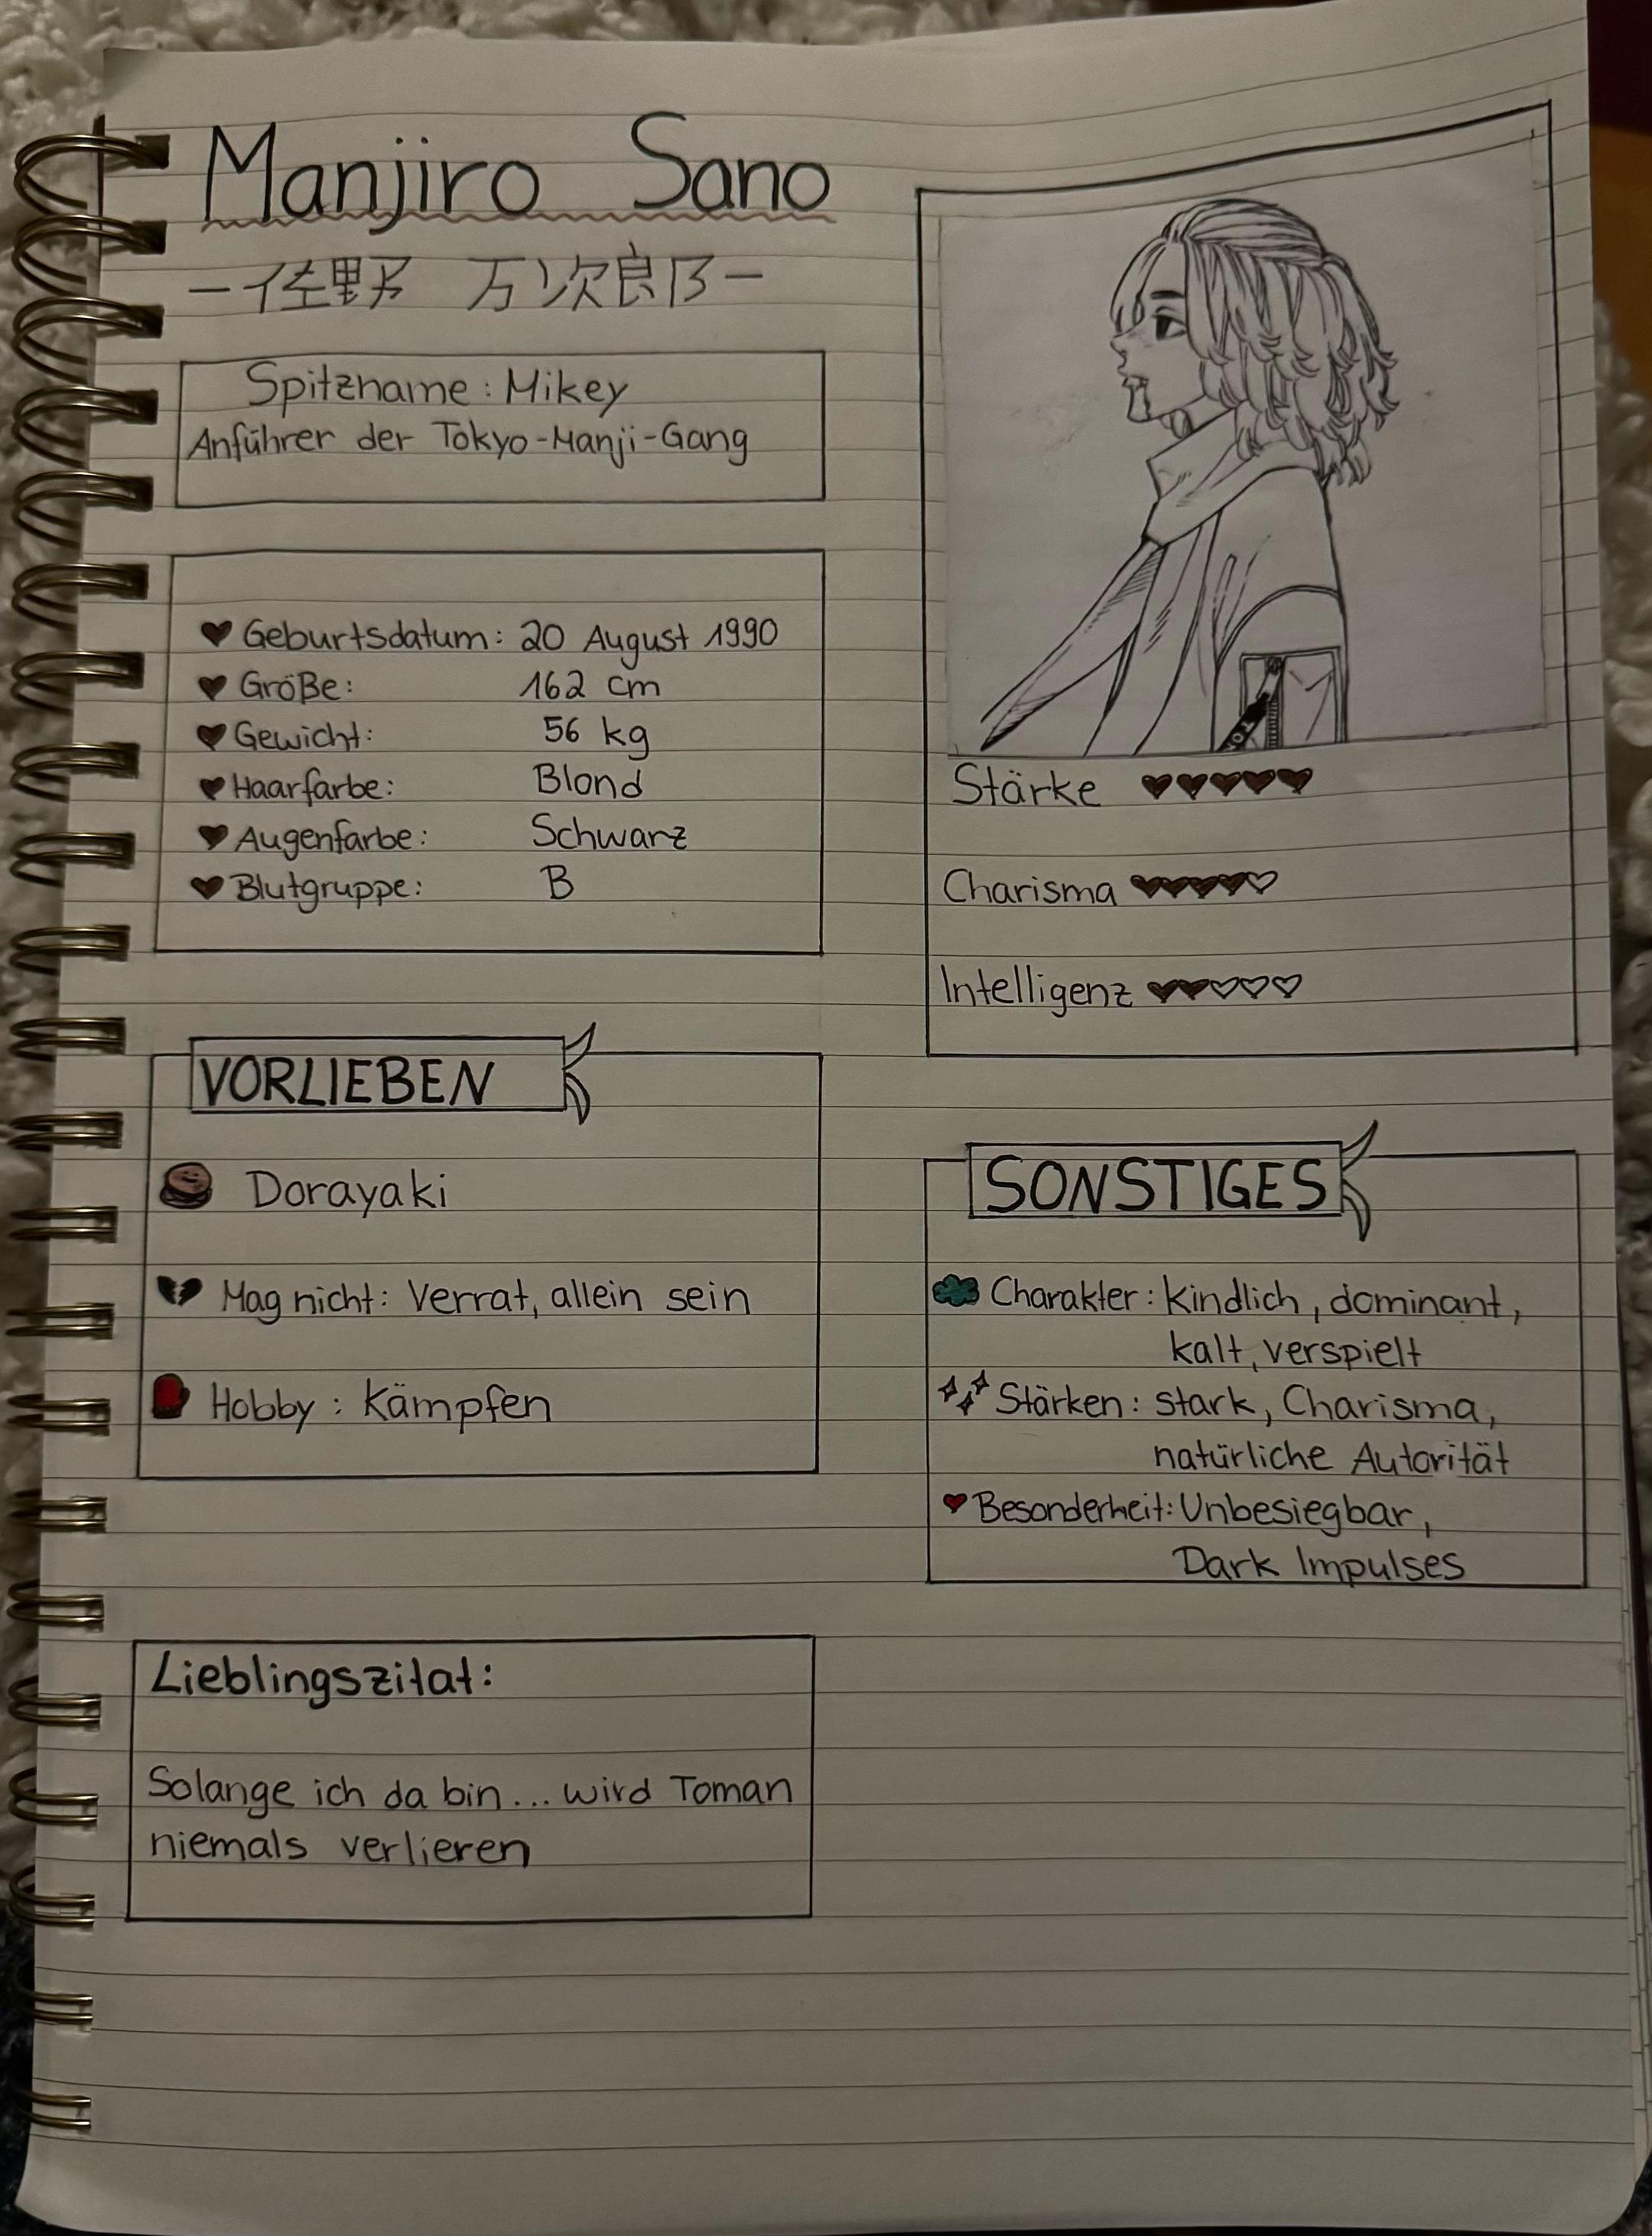 Manjiro Sano
-佐野 万次郎-
Spitzname: Mikey
Anführer der Tokyo-Manji-Gang
Geburtsdatum: 20 August 1990
Größe: 162 cm
Gewicht: 56 kg
Haarfarbe: Blond
Augenfarbe: Schwarz
Blutgruppe: B
Stärke
Charisma
Intelligenz
VORLIEBEN
Dorayaki
Mag nicht: Verrat, allein sein
Hobby: Kämpfen
SONSTIGES
Charakter: kindlich, dominant,
kalt, verspielt
Stärken: stark, Charisma,
natürliche Autorität
Besonderheit: Unbesiegbar,
Dark Impulses
Lieblingszitat:
Solange ich da bin... wird Toman
niemals verlieren